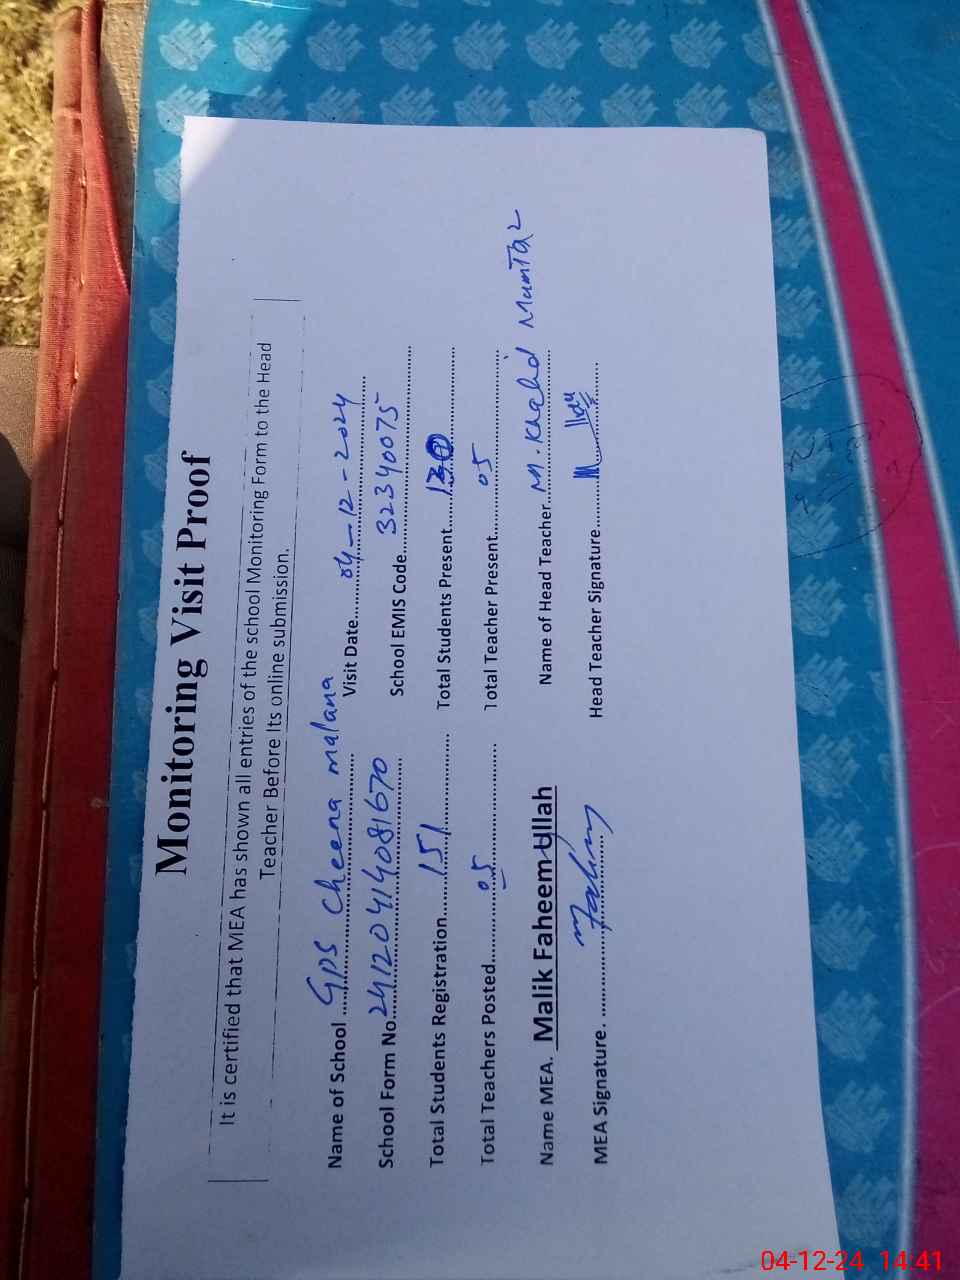 Monitoring Visit Proof
It is certified that MEA has shown all entries of the school Monitoring Form to the Head
Teacher Before Its online submission.
Name of School ....GPS Cheena malana
Visit Date......04-12-2024
School Form No...24120414081670
School EMIS Code......32340075
Total Students Registration......151
Total Students Present......130
Total Teachers Posted............05
Total Teacher Present......05
Name MEA. Malik Faheem Ullah
Name of Head Teacher...M. Khalid Mumtaz
MEA Signature. ............
Head Teacher Signature............
04-12-24 14:41